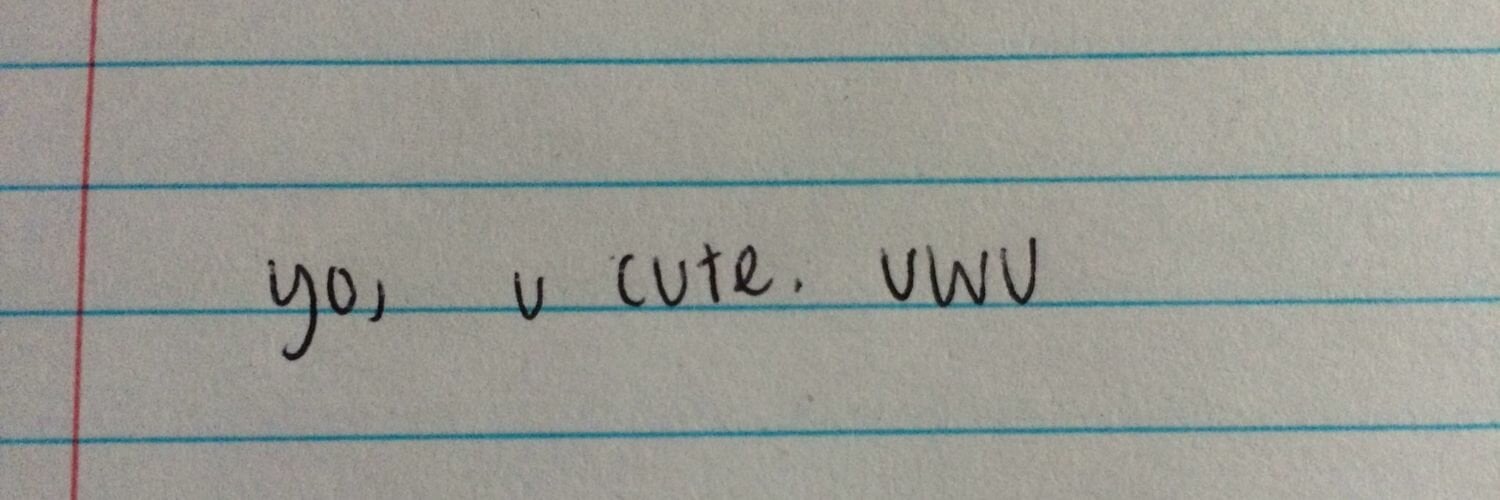 yo, u cute. uwu